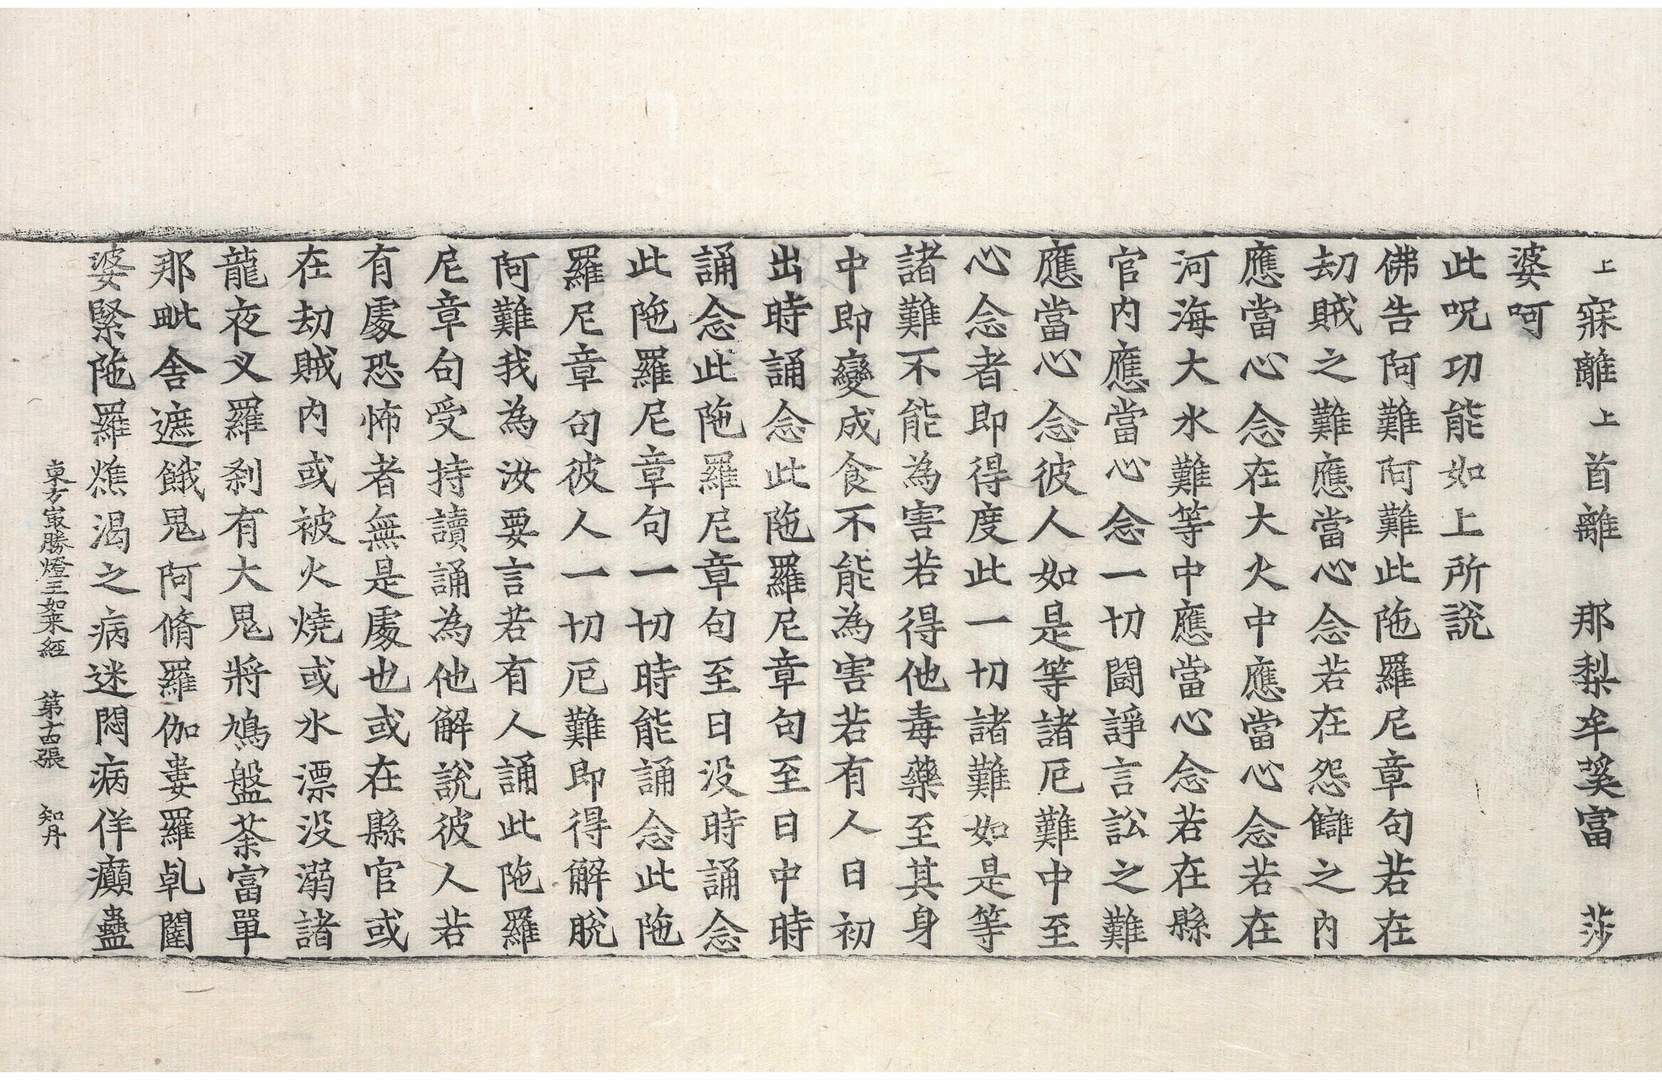 上寐離上首離　那梨牟㝹富　莎
婆呵
此呪功能如上所說
佛告阿難阿難此陁羅尼章句若在
劫賊之難應當心念若在怨讎之內
應當心念在大火中應當心念若在
河海大水難等中應當心念若在縣
官內應當心念一切鬪諍言訟之難
應當心念彼人如是等諸厄難中至
心念者即得度此一切諸難如是等
諸難不能為害若得他毒藥至其身
中即變成食不能為害若有人日初
出時誦念此陁羅尼章句至日中時
誦念此陁羅尼章句至日没時誦念
此陁羅尼章句一切時能誦念此陁
羅尼章句彼人一切厄難即得解脫
阿難我為汝要言若有人誦此陁羅
尼章句受持讀誦為他解說彼人若
有處恐怖者無是處也或在縣官或
在劫賊內或被火燒或水漂没溺諸
龍夜叉羅剎有大鬼將鳩盤荼富單
那毗舍遮餓鬼阿脩羅伽婁羅乹闥
婆緊陁羅燋渴之病迷悶病佯癲蠱
東方最勝燈王如来經　第十四張　知丹